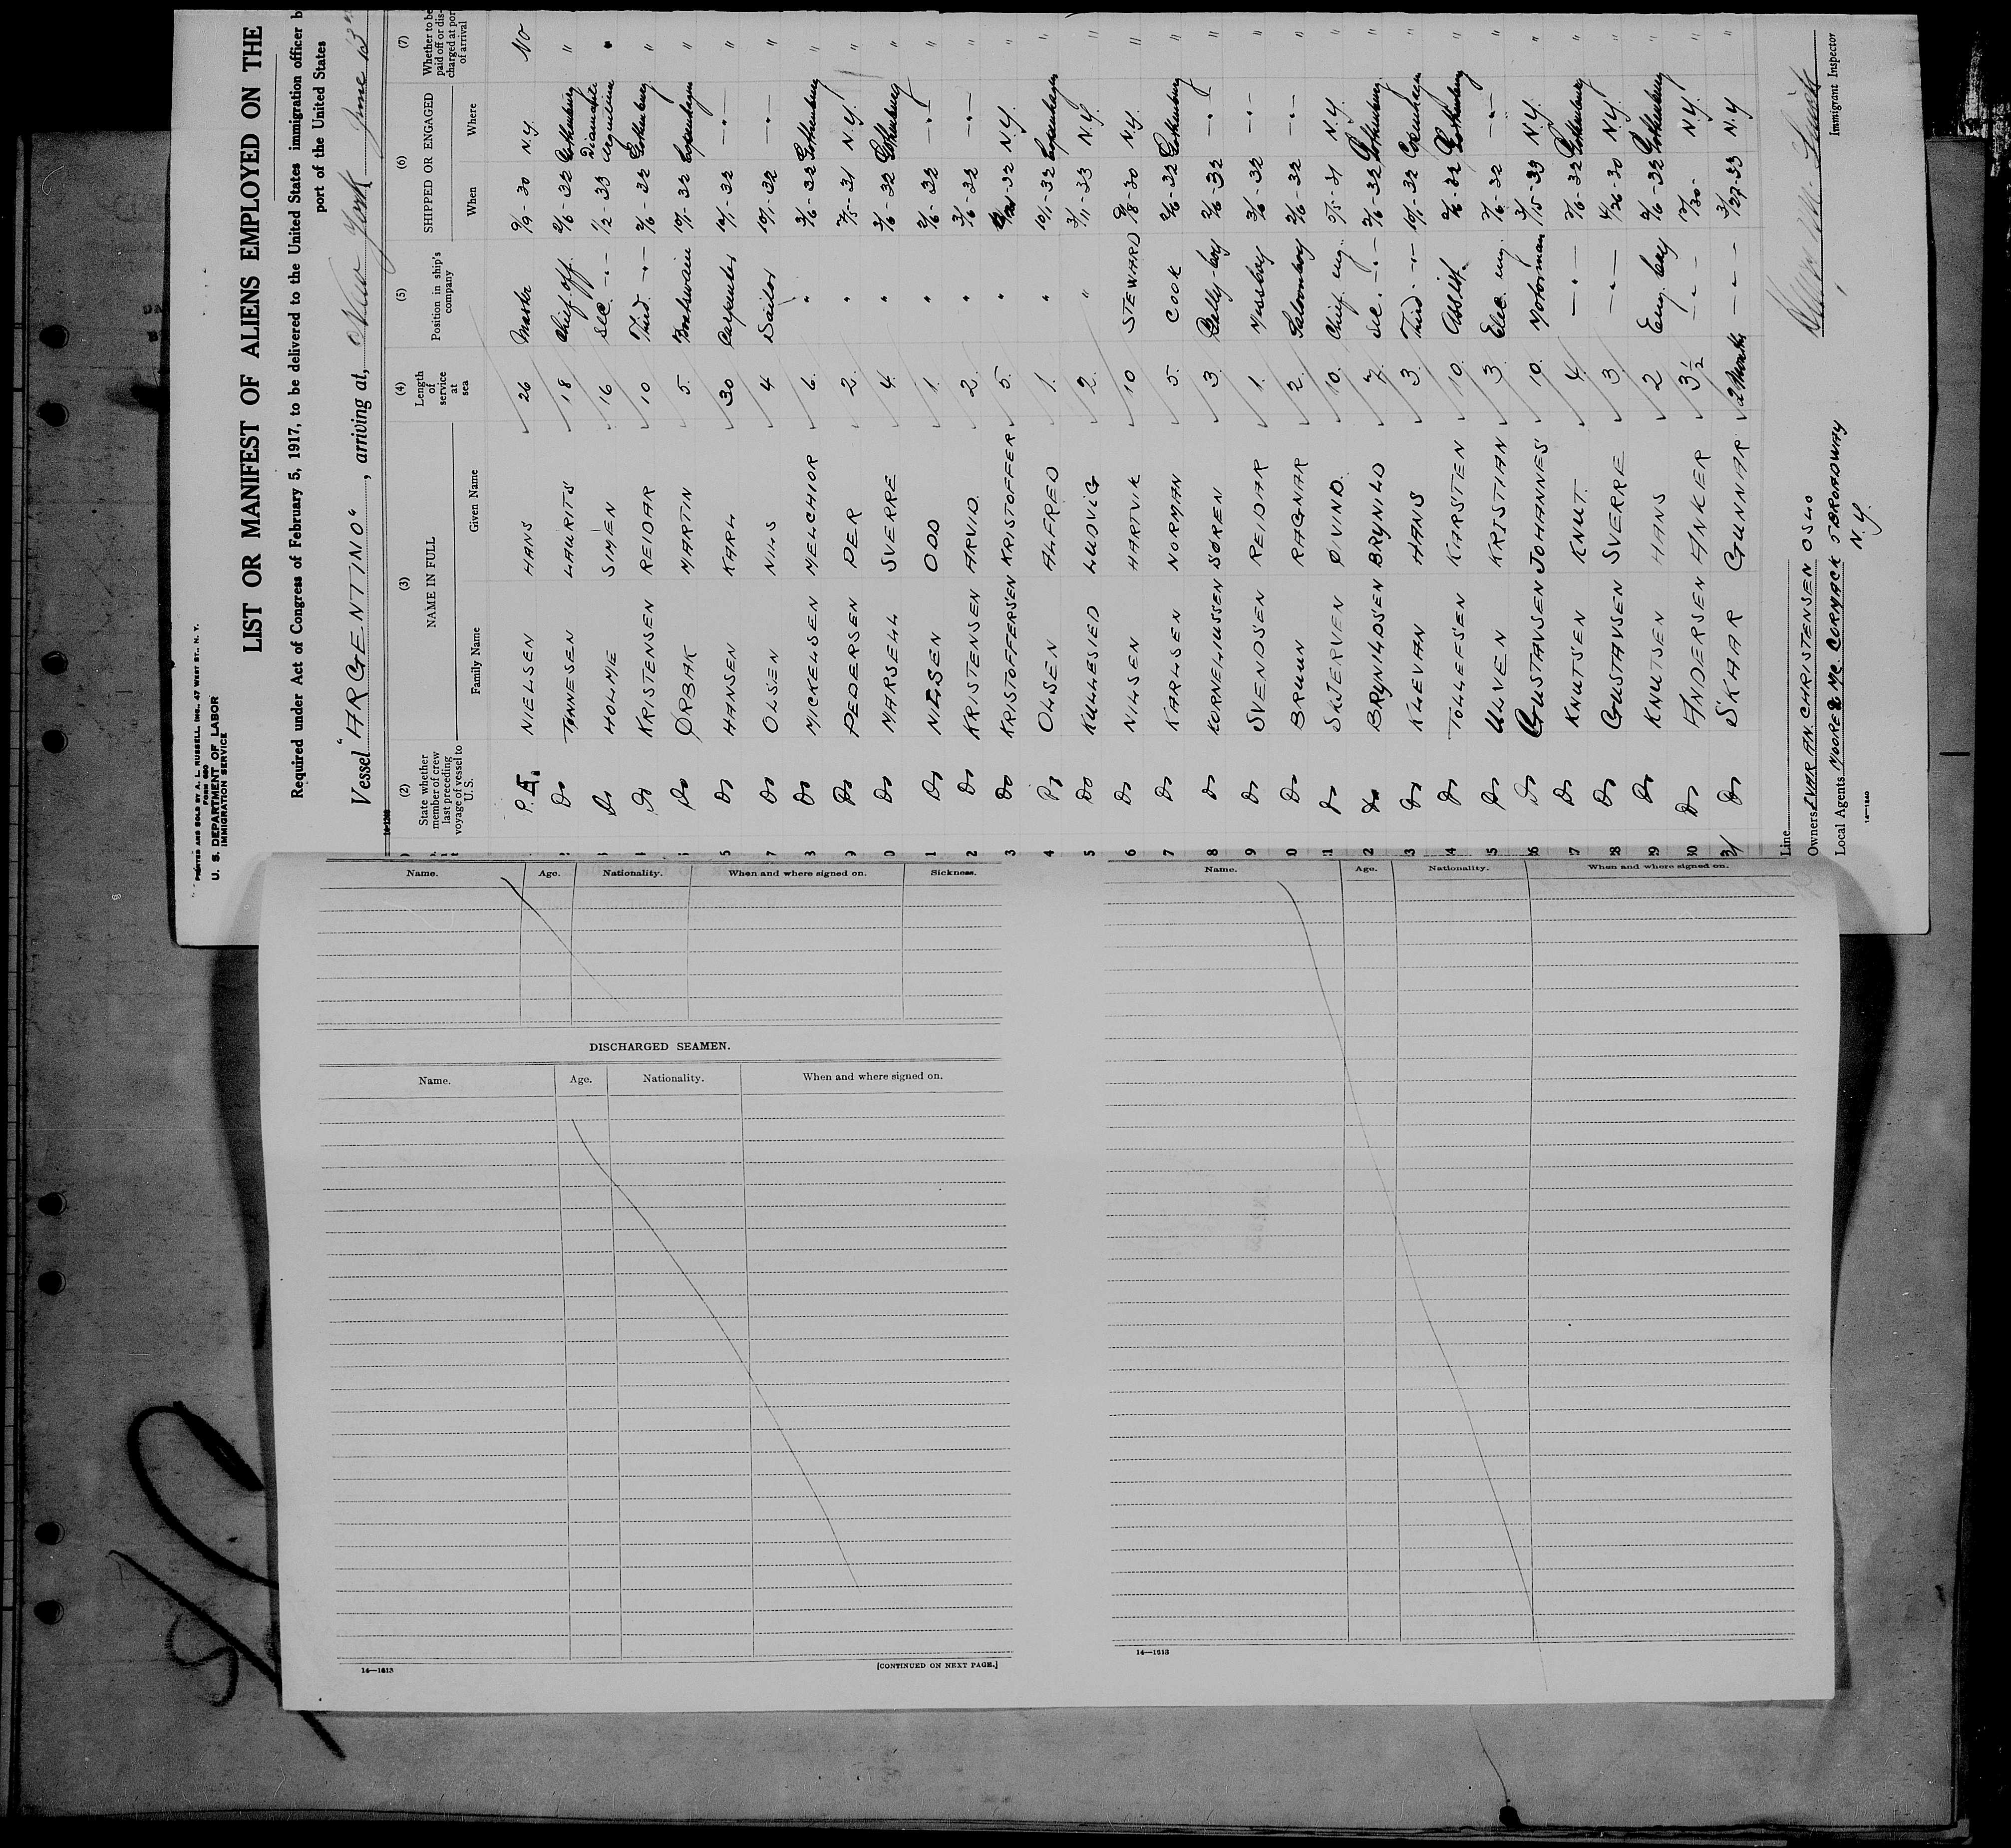 PRINTED AND SOLD BY A. L. RUSSELL, INC., 47 WEST ST., N. Y.
FORM 680
U. S. DEPARTMENT OF LABOR
IMMIGRATION SERVICE
LIST OR MANIFEST OF ALIENS EMPLOYED ON THE
Required under Act of Congress of February 5, 1917, to be delivered to the United States immigration officer b
port of the United States
Vessel "ARGENTINO", arriving at, New York June 13
(2) (3) (4) (5) (6) (7)
State whether member of crew last preceding voyage of vessel to U.S. NAME IN FULL Length of service at sea Position in ship's company SHIPPED OR ENGAGED Whether to be paid off or discharged at port of arrival
Family Name Given Name When Where
P.E. NIELSEN HANS 26 Master 9/9-30 N.Y. No
2 Do TØNNESEN LAURITS 18 Chief off. 2/6-32 Gothenburg "
3 Do HOLME SIMEN 16 Sec. -"- 1/2-33 "
4 Do KRISTENSEN REIDAR 10 Third -"- 2/6-32 Gothenburg "
Do ØRBAK MARTIN 5 Boatswain 10/1-32 Copenhagen "
5 Do HANSEN KARL 30 Carpenter 10/1-32 -"- "
7 Do OLSEN NILS 4 Sailor 10/1-32 -"- "
8 Do MICKELSEN MELCHIOR 6 " 3/6-32 Gothenburg "
9 Do PEDERSEN PER 2 " N.Y. "
0 Do MARSELL SVERRE 4 " 3/6-32 Gothenburg "
1 Do NILSEN ODD 1 " 2/6-32 -"- "
2 Do KRISTENSEN ARVID 2 " 3/6-32 -"- "
3 Do KRISTOFFERSEN KRISTOFFER 5 " N.Y. "
4 Do OLSEN ALFRED 1 " 10/1-32 Copenhagen "
5 Do KULLESIED LUDVIG 2 " 3/11-33 N.Y. "
6 Do NILSEN HARTVIK 10 STEWARD N.Y. "
7 Do KARLSEN NORMAN 5 COOK 2/6-32 Gothenburg "
8 Do KORNELIUSSEN SØREN 3 Galley-boy 2/6-32 -"- "
9 Do SVENDSEN REIDAR 1 Messboy 3/6-32 -"- "
0 Do BRUUN RAGNAR 2 Saloonboy 2/6-32 -"- "
1 Do SKJERVEN ØIVIND 10 Chief eng. N.Y. "
2 Do BRYNILDSEN BRYNILD 7 Sec. -"- 2/6-32 Gothenburg "
3 Do KLEVAN HANS 3 Third -"- 10/1-32 Copenhagen "
4 Do TOLLEFSEN KARSTEN 10 Assist. 2/6-32 Gothenburg "
5 Do ULVEN KRISTIAN 3 Elec. eng. 2/6-32 -"- "
6 Do GUSTAVSEN JOHANNES 10 Motorman 3/15-33 N.Y. "
7 Do KNUTSEN KNUT 4 -"- 2/6-32 Gothenburg "
28 Do GUSTAVSEN SVERRE 3 -"- 4/26-30 N.Y. "
29 Do KNUTSEN HANS 2 Eng. boy 2/6-32 Gothenburg "
30 Do ANDERSEN ANKER 3½ -"- N.Y. "
31 Do SKAAR GUNNAR 2 Months -"- 3/27-33 N.Y. "
Line
Owners IVAR AN. CHRISTENSEN OSLO
Local Agents MOORE & Mc. CORMACK 5 BROADWAY
N.Y.
Immigrant Inspector
Name. Age. Nationality. When and where signed on. Sickness.
DISCHARGED SEAMEN.
Name. Age. Nationality. When and where signed on.
14—1613
[CONTINUED ON NEXT PAGE.]
Name. Age. Nationality. When and where signed on.
14—1613